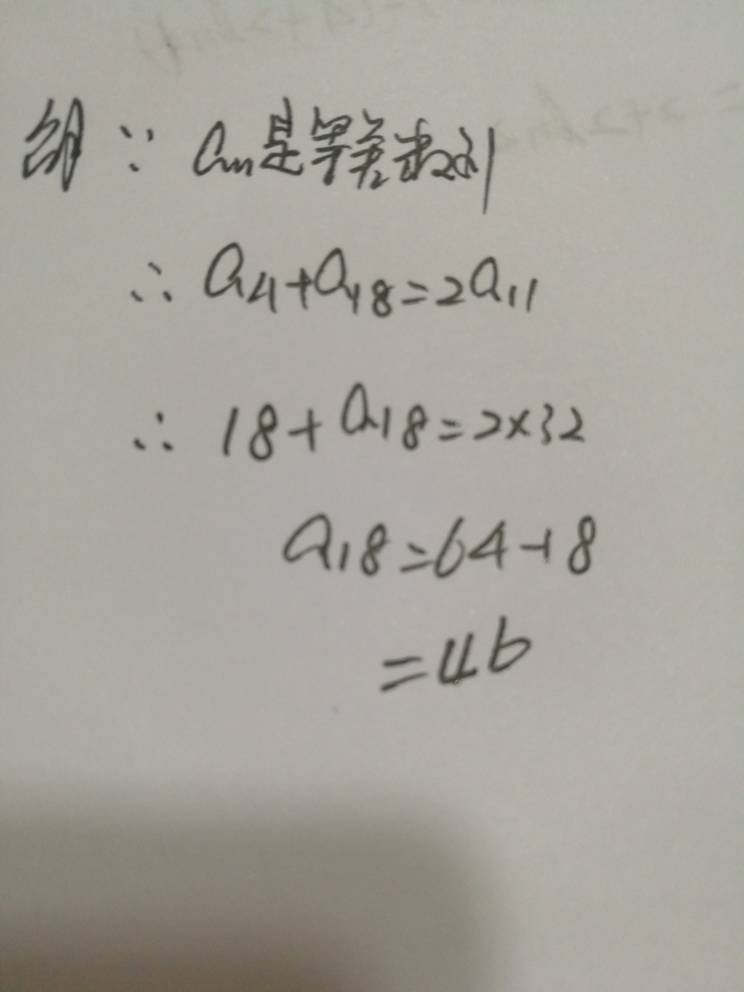 解 ∵ an是等差数列
∴ a4+a18=2a11
∴ 18+a18=2×32
a18=64-18
=46